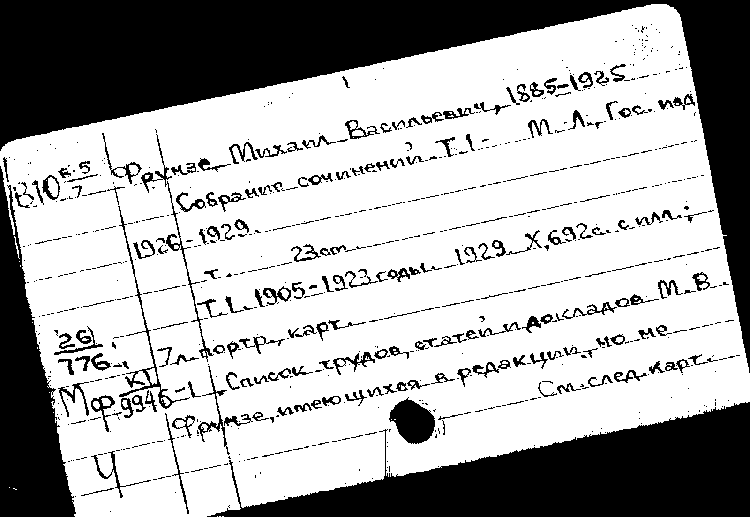 В10 6.5/7 Фрунзе, Михаил Васильевич, 1885-1925
Собрание сочинений. Т.1- М.-Л., Гос. изд
1926-1929.
т. 23см.
Т.1. 1905-1923 годы. 1929. X, 692с. с илл.;
26/776 7л. портр., карт.
Мф К1/9946-1 . Список трудов, статей и докладов М.В.
Фрунзе, имеющихся в редакции, но не
Ч См. след. карт.